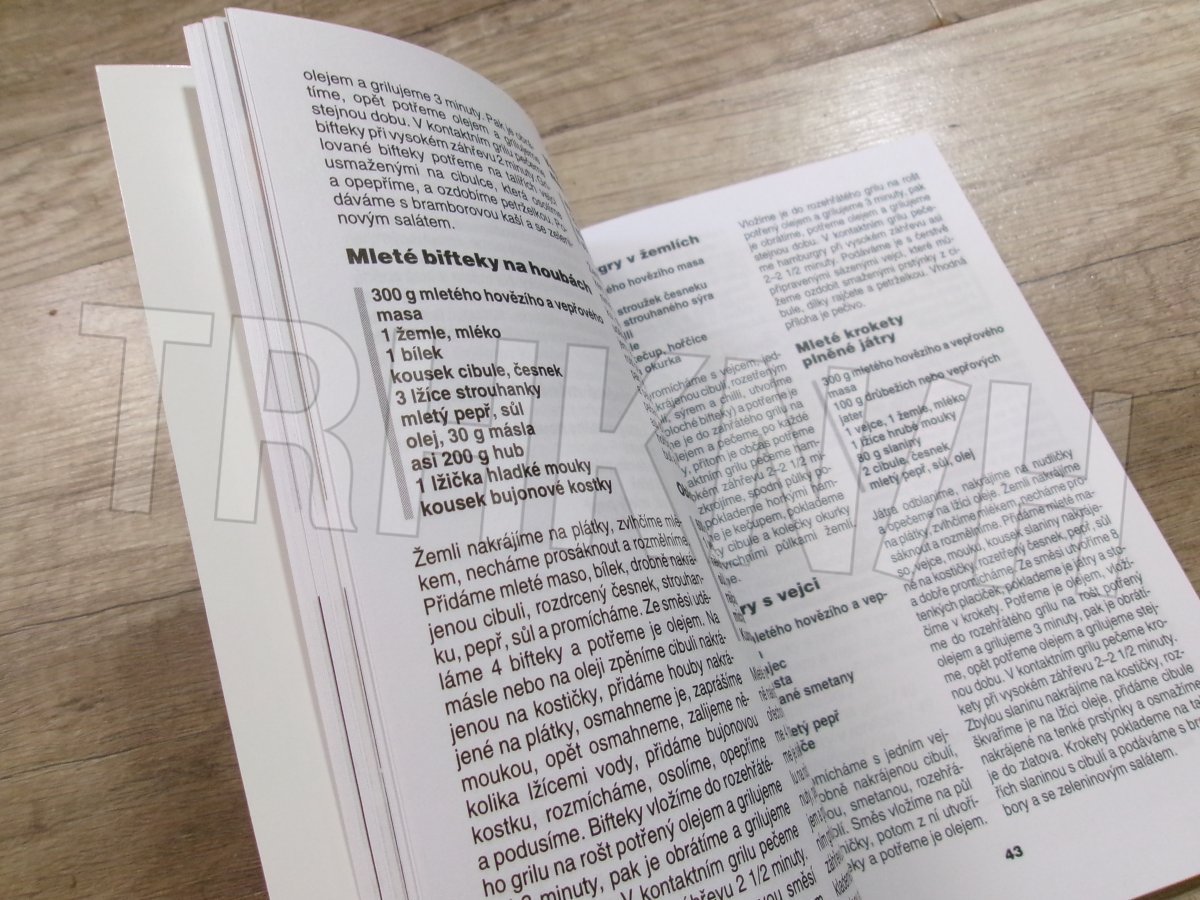 olejem a grilujeme 3 minuty. Pak je obrá-
tíme, opět potřeme olejem a grilujeme
stejnou dobu. V kontaktním grilu pečeme
bifteky při vysokém záhřevu 2 minuty. Gri-
lované bifteky potřeme na talířích vejci
usmaženými na cibulce, která osolíme
a opepříme, a ozdobíme petrželkou. Po-
dáváme s bramborovou kaší a se zeleni-
novým salátem.
Mleté bifteky na houbách
300 g mletého hovězího a vepřového
masa
1 žemle, mléko
1 bílek
kousek cibule, česnek
3 lžíce strouhanky
mletý pepř, sůl
olej, 30 g másla
asi 200 g hub
1 lžička hladké mouky
kousek bujonové kostky
Žemli nakrájíme na plátky, zvlhčíme mlé-
kem, necháme prosáknout a rozmělníme.
Přidáme mleté maso, bílek, drobně nakrá-
jenou cibuli, rozdrcený česnek, strouhan-
ku, pepř, sůl a promícháme. Ze směsi udě-
láme 4 bifteky a potřeme je olejem. Na
másle nebo na oleji zpěníme cibuli nakrá-
jenou na kostičky, přidáme houby nakrá-
jené na plátky, osmahneme je, zaprášíme
moukou, opět osmahneme, zalijeme ně-
kolika lžícemi vody, přidáme bujonovou
kostku, rozmícháme, osolíme, opepříme
a podusíme. Bifteky vložíme do rozehřáté-
ho grilu na rošt potřený olejem a grilujeme
minuty, pak je obrátíme a grilujeme
V kontaktním grilu pečeme
záhřevu 2 1/2 minuty.
směsí
gry v žemlích
ého hovězího masa
stroužek česneku
strouhaného sýra
kečup, hořčice
okurka
romícháme s vejcem, jed-
krájenou cibulí, rozetřeným
sýrem a chilli, utvoříme
ploché bifteky) a potřeme je
me je do zahřátého grilu na
olejem a pečeme po každé
y, přitom je občas potřeme
aktním grilu pečeme ham-
okém záhřevu 2–2 1/2 mi-
zkrojíme, spodní půlky po-
poklademe horkými ham-
je je kečupem, poklademe
ky cibule a kolečky okurky
vrchními půlkami žemlí.
ry s vejci
mletého hovězího a vep-
ejec
sta
ané smetany
letý pepř
omícháme s jedním vej-
robně nakrájenou cibulí,
ou, smetanou, rozehřá-
Směs vložíme na půl
ničky, potom z ní utvoří-
eky a potřeme je olejem.
Vložíme je do rozehřátého grilu na rošt
potřený olejem a grilujeme 3 minuty, pak
je obrátíme, potřeme olejem a grilujeme
stejnou dobu. V kontaktním grilu peče-
me hamburgry při vysokém záhřevu asi
2–2 1/2 minuty. Podáváme je s čerstvě
připravenými sázenými vejci, které mů-
žeme ozdobit smaženými prstýnky z ci-
bule, dílky rajčete a petrželkou. Vhodná
příloha je pečivo.
Mleté krokety
plněné játry
300 g mletého hovězího a vepřového
masa
100 g drůbežích nebo vepřových
jater
1 vejce, 1 žemle, mléko
1 lžíce hrubé mouky
80 g slaniny
2 cibule, česnek
mletý pepř, sůl, olej
Játra odblaníme, nakrájíme na nudličky
a opečeme na lžíci oleje. Žemli nakrájíme
na plátky, zvlhčíme mlékem, necháme pro-
sáknout a rozmělníme. Přidáme mleté ma-
so, vejce, mouku, kousek slaniny nakráje-
né na kostičky, rozetřený česnek, pepř, sůl
a dobře promícháme. Ze směsi utvoříme 8
tenkých placiček, poklademe je játry a sto-
číme v krokety. Potřeme je olejem, vloží-
me do rozehřátého grilu na rošt potřený
olejem a grilujeme 3 minuty, pak je obrátí-
me, opět potřeme olejem a grilujeme stej-
nou dobu. V kontaktním grilu pečeme kro-
kety při vysokém záhřevu 2–2 1/2 minuty.
Zbylou slaninu nakrájíme na kostičky, roz-
škvaříme je na lžíci oleje, přidáme cibule
nakrájené na tenké prstýnky a osmažíme
je do zlatova. Krokety poklademe na
řích slaninou s cibulí a podáváme s
bory a se zeleninovým salátem.
43